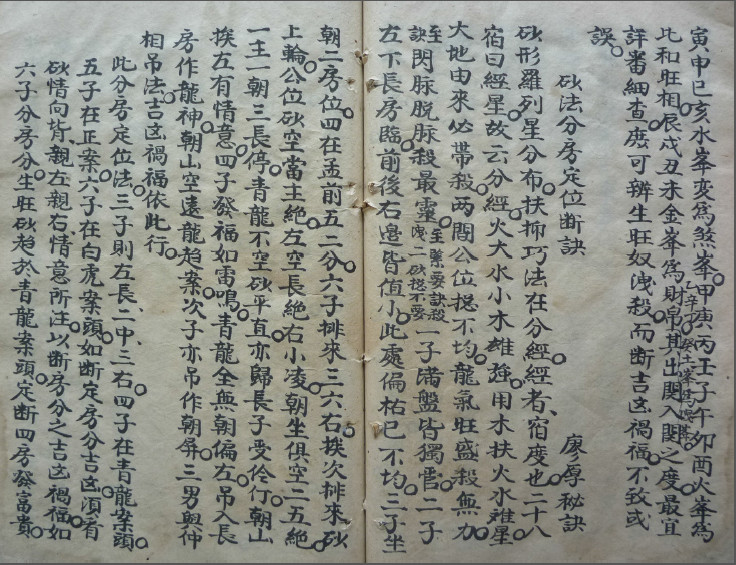 寅申巳亥水峯変爲煞峯。甲庚丙壬子午卯酉火峯爲
比和旺相。辰戌丑未金峯爲財帛。其出関入関之度。最宜
評番細查。庶可辨生旺奴洩殺。而断吉凶禍福。不致或
誤。
砂法分房定位断訣
廖厚秘訣
砂形羅列星分布。扶抑巧法在分經。經者、宿度也。二十八
宿曰經星。故云分經。火大水小木雄強。用木扶火水雄星
大地由來必帶殺。两間公位捴不均。龍氣旺盛殺無力。
訣閃脉脱脉殺最靈。一子諸盤皆獨管。二子
左下長房臨。前後右邉皆值小。此處偏枯已不均。三子坐
朝二房位。四在孟前五二分。六子排來三六右。挨次排來砂
上輪。公位砂空當主絶。左空長絶右小凌。朝坐俱空二五絶
一主一朝三長停。青龍不空砂平直。亦歸長子受伶仃。朝山
挨左有情意。四子發福如雷鳴。青龍全無朝偏左。吊入長
房作龍神。朝山空遠龍趋案。次子亦吊作朝屏。三男與仲
相吊法。吉凶禍福依此行。
此分房定位法。三子則左長、二中、三右。四子在青龍案頭。
五子在正案。六子在白虎案頭。如断定房分吉凶。湏看
砂情向背。親左親右。情意所注。以断房分之吉凶禍福。如
六子分房分。生旺砂趋於青龍案頭。定断四房發富貴。